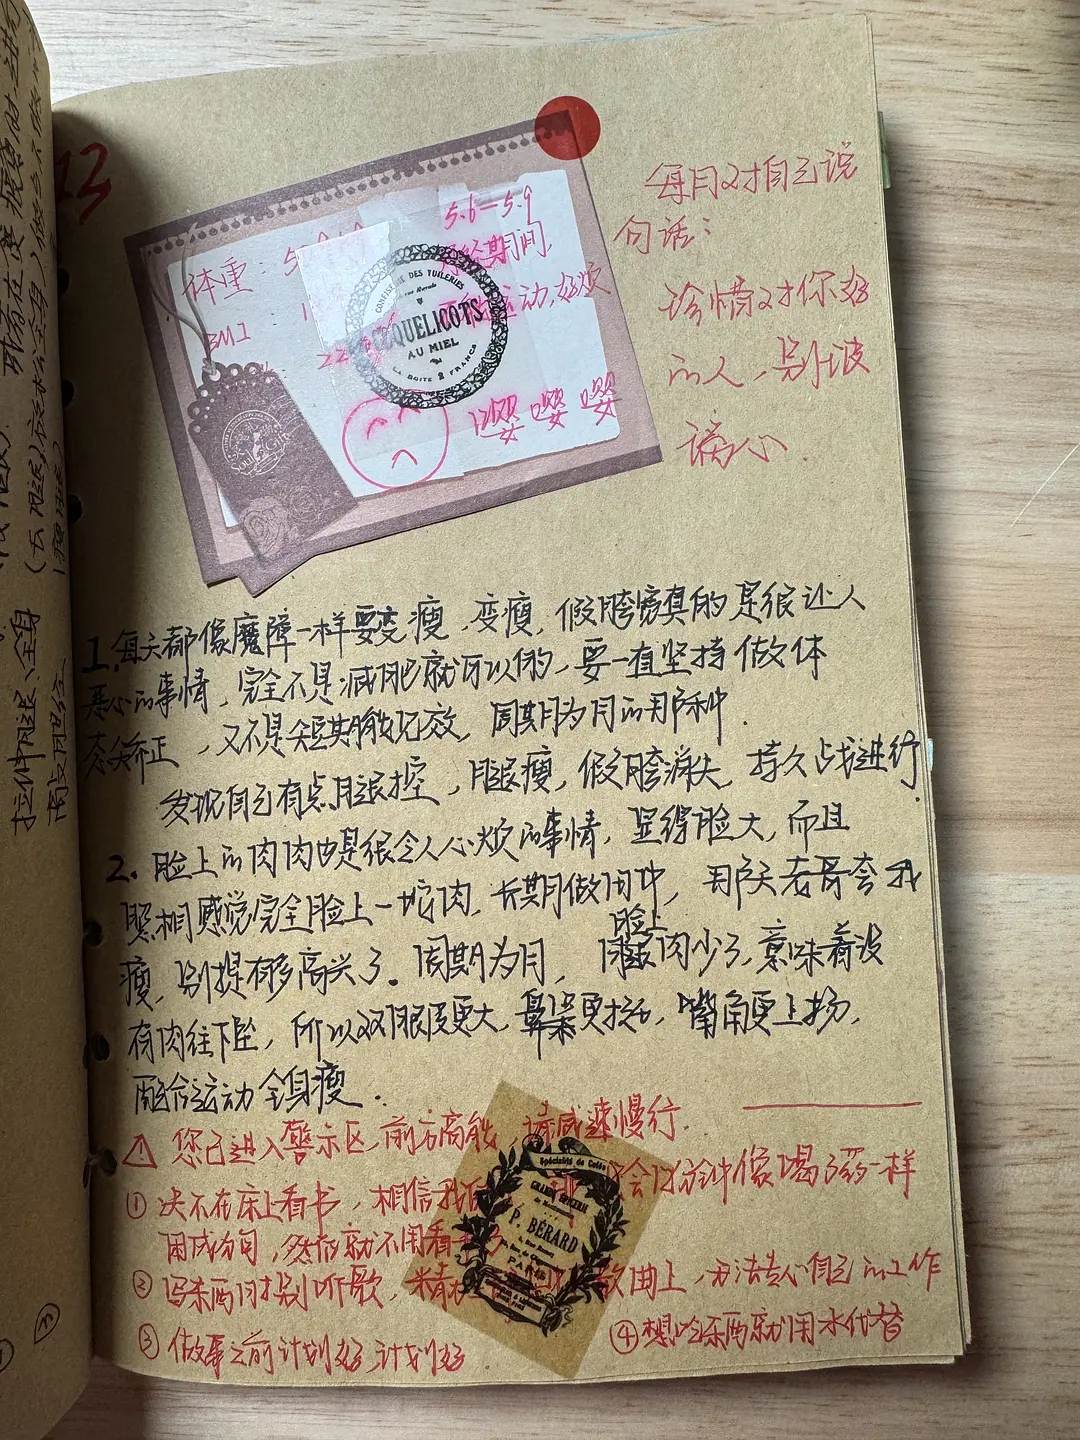 体重:
5.6－5.9
期间,
运动,好烦
BMI
22
嘤 嘤 嘤
CONFISERIE DES TUILERIES
COQUELICOTS
AU MIEL
LA BOITE 2 FRANCS
每月对自己说
句话:
珍惜对你好
的人,别玻
璃心.
1.每天都像魔障一样要变瘦,变瘦,假胯宽真的是很让人
恶心的事情,完全不是减肥就可以的,要一直坚持做体
态矫正,又不是短期能见效,周期为月的那种.
发现自己有点腿控,腿瘦,假胯消失,持久战进行
2.脸上的肉肉也是很令人心烦的事情,显得脸大,而且
照相感觉完全脸上一坨肉,长期做闭中,那天老哥夸我
瘦,别提有多高兴了.周期为月,脸上肉少了,意味着没
有肉往下坠,所以双眼皮更大,鼻梁更挺,嘴角更上扬,
配合运动全身瘦.
您已进入警示区,前方高能,请减速慢行.
①决不在床上看书,相信我 会10分钟像喝了药一样
困成狗,然后就不用看
②写东西时别听歌, 歌曲上,无法专心自己的工作
③做事之前计划好计划好
④想吃东西就用水代替
Spécialité de
GRANDE EPICERIE
P. BÉRARD
PARIS
拉伸腿、全身